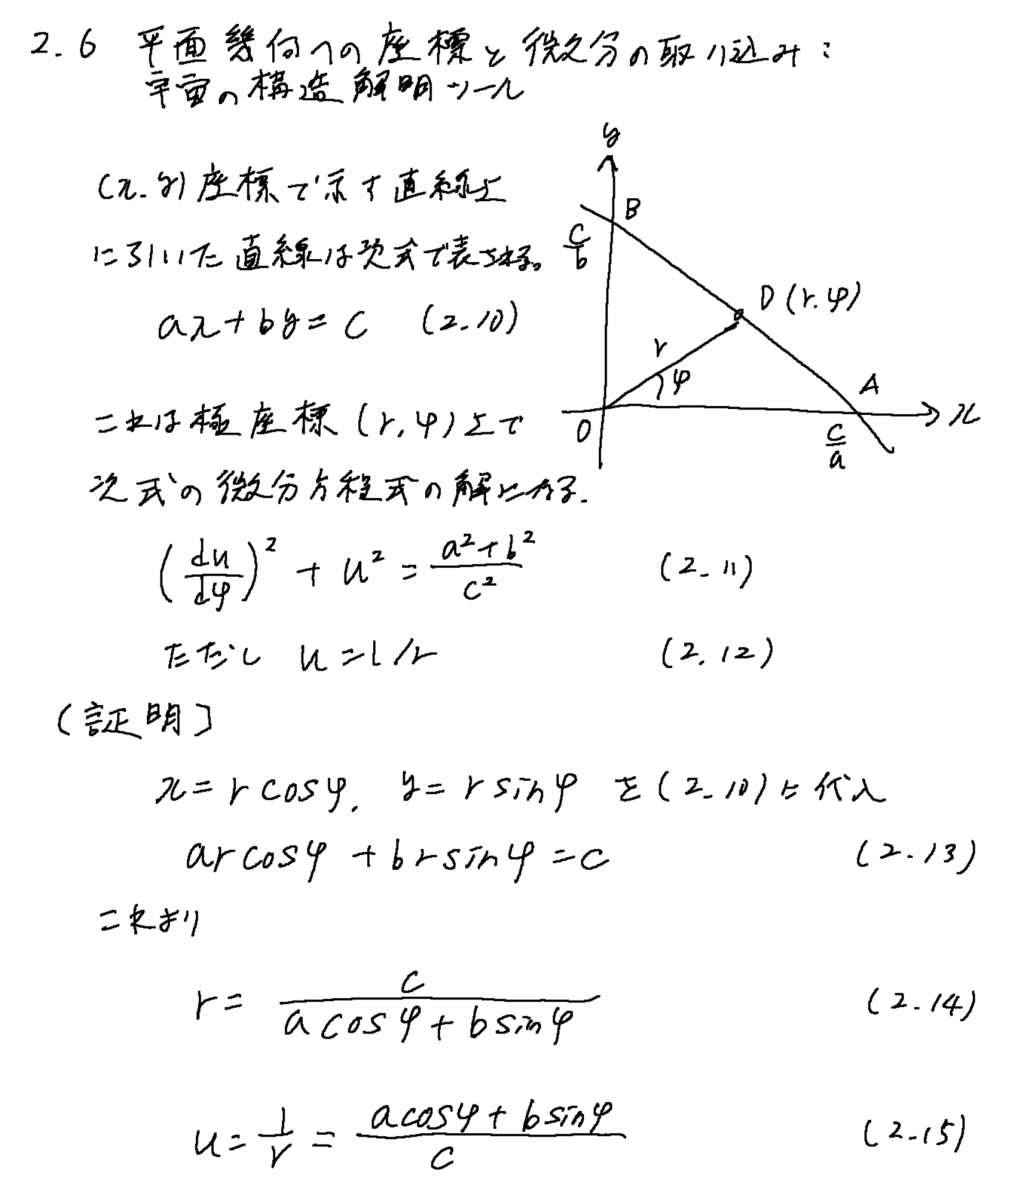 2.6 平面幾何への座標と微分の取り込み:
宇宙の構造解明ツール
(x.y)座標で示す直線上
に引いた直線は次式で表される。
ax+by=c (2.10)
y
B
c/b
D(r.φ)
r
φ
A
O
c/a
x
これは極座標(r,φ)上で
次式の微分方程式の解になる.
(du/dφ)² + u² = (a²+b²)/c² (2.11)
ただし u=1/r (2.12)
(証明]
x=r cosφ. y=r sinφ を(2.10)に代入
ar cosφ + br sinφ = c (2.13)
これより
r= c/(a cosφ + b sinφ) (2.14)
u= 1/r = (a cosφ + b sinφ)/c (2.15)